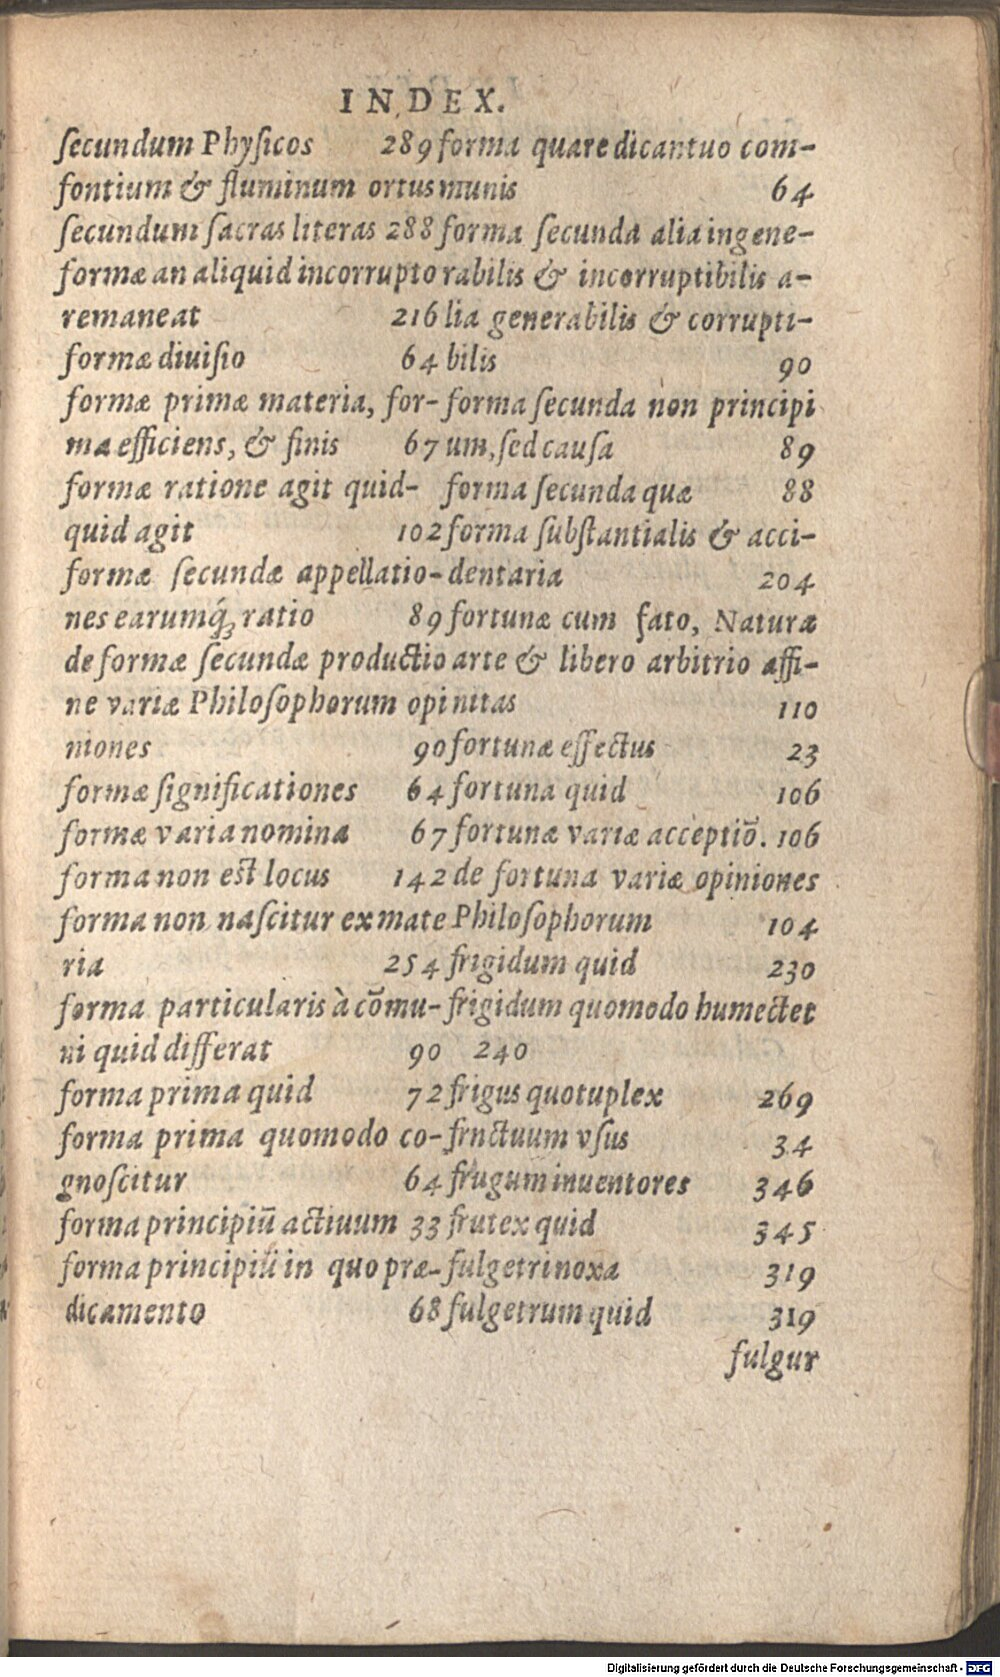 INDEX.
ſecundum Phyſicos 289
fontium & fluminum ortus
ſecundum ſacras literas 288
formæ an aliquid incorrupto
remaneat 216
formæ diuiſio 64
formæ primæ materia, for-
ma efficiens, & finis 67
formæ ratione agit quid-
quid agit 102
formæ ſecundæ appellatio-
nes earumq́ꝫ ratio 89
de formæ ſecundæ productio
ne variæ Philoſophorum opi
niones 90
formæ ſignificationes 64
formæ varia nomina 67
forma non est locus 142
forma non naſcitur ex mate
ria 254
forma particularis à cōmu-
ni quid differat 90
forma prima quid 72
forma prima quomodo co-
gnoſcitur 64
forma principiū actiuum 33
forma principiū in quo præ-
dicamento 68
forma quare dicantuo com-
munis 64
forma ſecunda alia ingene-
rabilis & incorruptibilis a-
lia generabilis & corrupti-
bilis 90
forma ſecunda non principi
um, ſed cauſa 89
forma ſecunda quæ 88
forma ſubſtantialis & acci-
dentaria 204
fortunæ cum fato, Naturæ
arte & libero arbitrio affi-
nitas 110
fortunæ effectus 23
fortuna quid 106
fortunæ variæ acceptiō. 106
de fortuna variæ opiniones
Philoſophorum 104
frigidum quid 230
frigidum quomodo humectet
240
frigus quotuplex 269
frnctuum vſus 34
frugum inuentores 346
frutex quid 345
fulgetri noxa 319
fulgetrum quid 319
fulgur
Digitalisierung gefördert durch die Deutsche Forschungsgemeinschaft - DFG